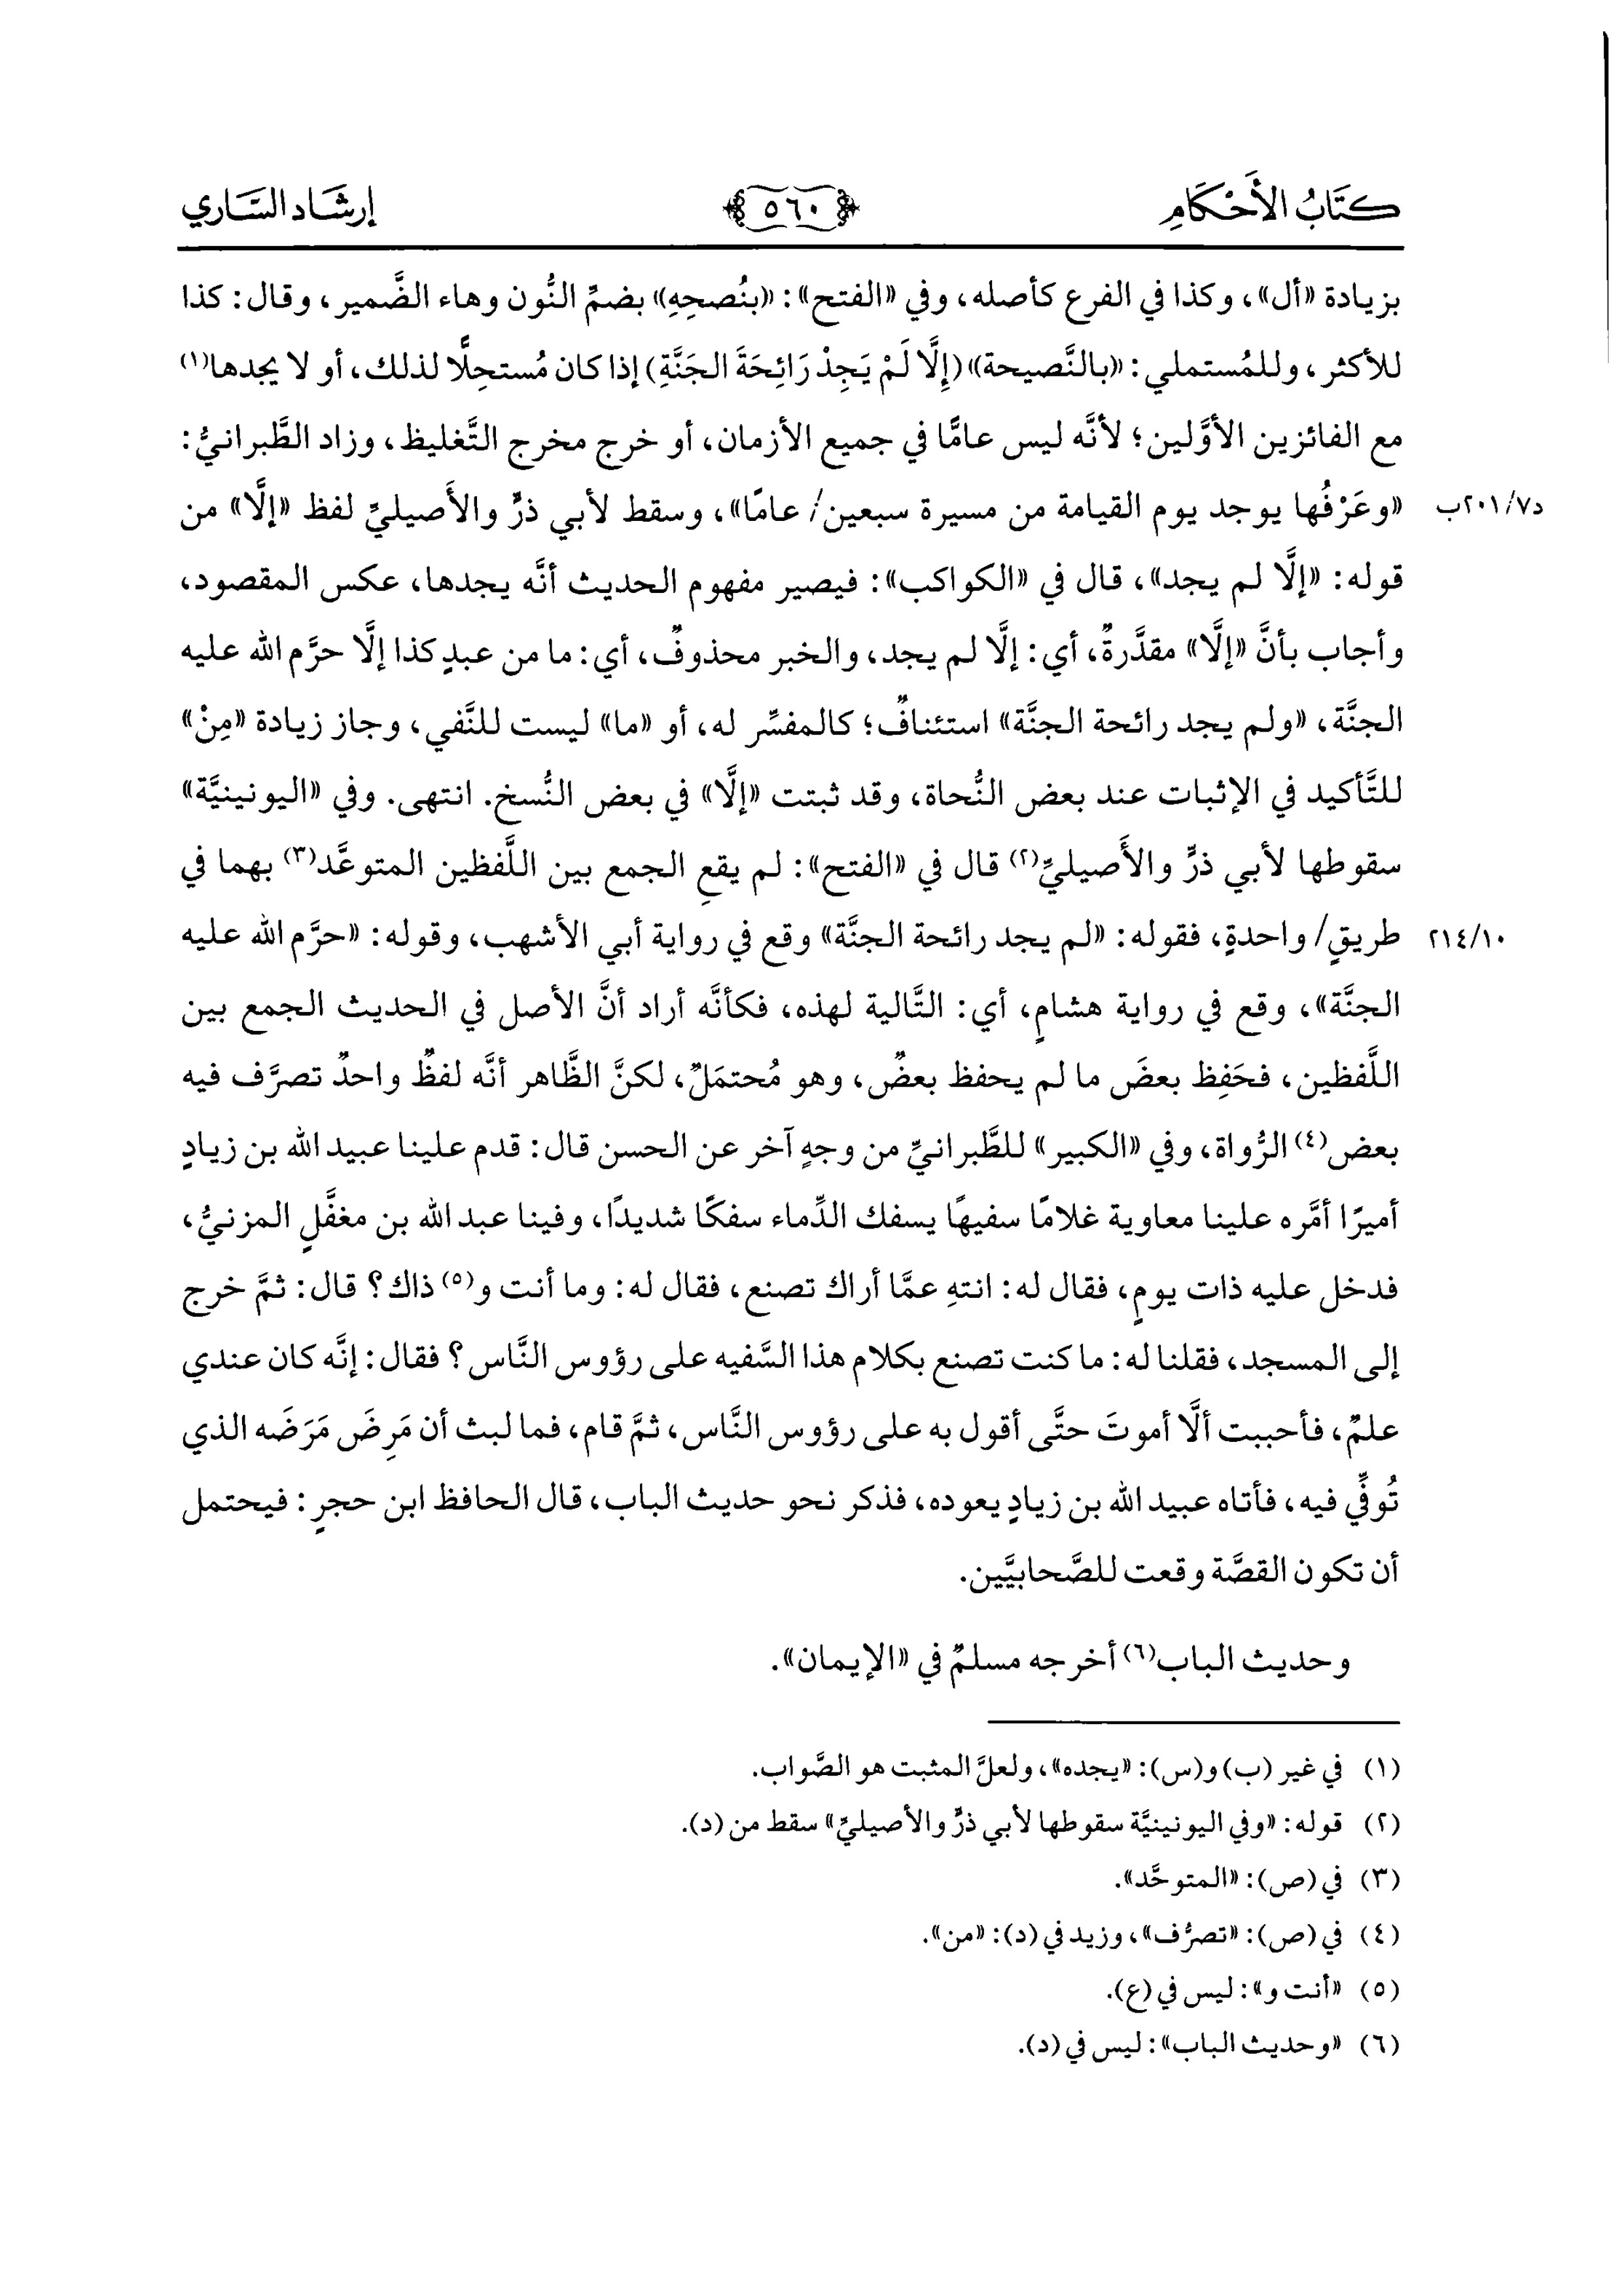 كتاب الأحكام
٥٦٠
إرشاد السَّاري
بزيادة «أل»، وكذا في الفرع كأصله، وفي «الفتح»: «بنُصحِهِ» بضمِّ النُّون وهاء الضَّمير، وقال: كذا
للأكثر، وللمُستملي: «بالنَّصيحة» (إِلَّا لَمْ يَجِدْ رَائِحَةَ الجَنَّةِ) إذا كان مُستحِلًّا لذلك، أو لا يجدها(١)
مع الفائزين الأوَّلين؛ لأنَّه ليس عامًّا في جميع الأزمان، أو خرج مخرج التَّغليظ، وزاد الطَّبرانيُّ:
«وعَرْفُها يوجد يوم القيامة من مسيرة سبعين/ عامًا»، وسقط لأبي ذرٍّ والأَصيليِّ لفظ «إلَّا» من
د٢٠١/٧ب
قوله: «إلَّا لم يجد»، قال في «الكواكب»: فيصير مفهوم الحديث أنَّه يجدها، عكس المقصود،
وأجاب بأنَّ «إلَّا» مقدَّرةٌ، أي: إلَّا لم يجد، والخبر محذوفٌ، أي: ما من عبدٍ كذا إلَّا حرَّم الله عليه
الجنَّة، «ولم يجد رائحة الجنَّة» استئنافٌ؛ كالمفسِّر له، أو «ما» ليست للنَّفي، وجاز زيادة «مِنْ»
للتَّأكيد في الإثبات عند بعض النُّحاة، وقد ثبتت «إلَّا» في بعض النُّسخ. انتهى. وفي «اليونينيَّة»
سقوطها لأبي ذرٍّ والأَصيليِّ(٢) قال في «الفتح»: لم يقعِ الجمع بين اللَّفظين المتوعَّد(٣) بهما في
طريقٍ/ واحدةٍ، فقوله: «لم يجد رائحة الجنَّة» وقع في رواية أبي الأشهب، وقوله: «حرَّم الله عليه
٢١٤/١٠
الجنَّة»، وقع في رواية هشامٍ، أي: التَّالية لهذه، فكأنَّه أراد أنَّ الأصل في الحديث الجمع بين
اللَّفظين، فحَفِظ بعضَ ما لم يحفظ بعضٌ، وهو مُحتمَلٌ، لكنَّ الظَّاهر أنَّه لفظٌ واحدٌ تصرَّف فيه
بعض(٤) الرُّواة، وفي «الكبير» للطَّبرانيِّ من وجهٍ آخر عن الحسن قال: قدم علينا عبيد الله بن زيادٍ
أميرًا أمَّره علينا معاوية غلامًا سفيهًا يسفك الدِّماء سفكًا شديدًا، وفينا عبد الله بن مغفَّلٍ المزنيُّ،
فدخل عليه ذات يومٍ، فقال له: انتهِ عمَّا أراك تصنع، فقال له: وما أنت و(٥) ذاك؟ قال: ثمَّ خرج
إلى المسجد، فقلنا له: ما كنت تصنع بكلام هذا السَّفيه على رؤوس النَّاس؟ فقال: إنَّه كان عندي
علمٌ، فأحببت ألَّا أموتَ حتَّى أقول به على رؤوس النَّاس، ثمَّ قام، فما لبث أن مَرِضَ مَرَضَه الذي
تُوفِّي فيه، فأتاه عبيد الله بن زيادٍ يعوده، فذكر نحو حديث الباب، قال الحافظ ابن حجرٍ: فيحتمل
أن تكون القصَّة وقعت للصَّحابيَّين.
وحديث الباب(٦) أخرجه مسلمٌ في «الإيمان».
(١) في غير (ب) و(س): «يجده»، ولعلَّ المثبت هو الصَّواب.
(٢) قوله: «وفي اليونينيَّة سقوطها لأبي ذرٍّ والأصيليِّ» سقط من (د).
(٣) في (ص): «المتوحَّد».
(٤) في (ص): «تصرُّف»، وزيد في (د): «من».
(٥) «أنت و»: ليس في (ع).
(٦) «وحديث الباب»: ليس في (د).